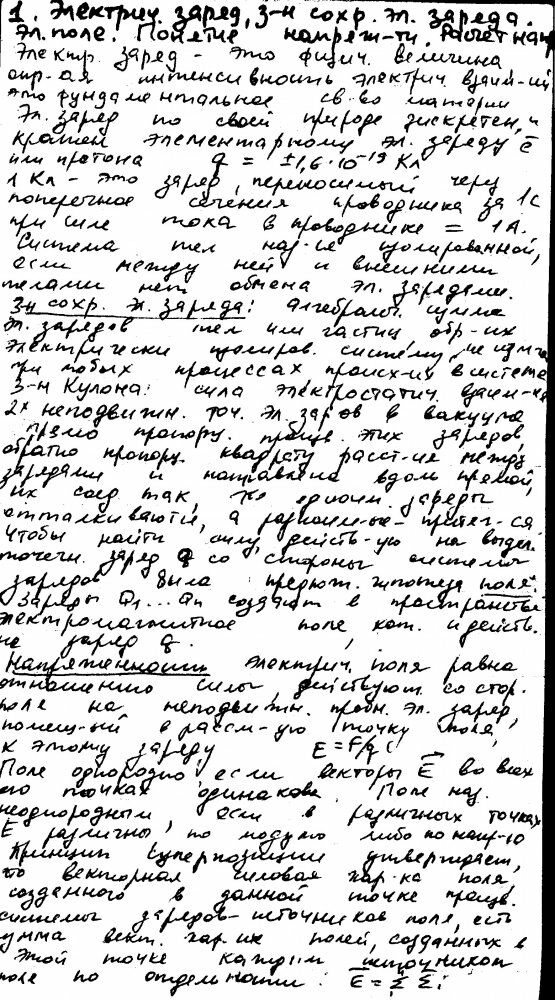 1. Электрич. заряд, З-н сохр. эл. заряда.
Эл. поле. Понятие напряж-ти. Расчет нап
Электр. заряд - это физич. величина
опр-ая интенсивность электрич. взаим-ий
это фундаментальное св-во материи
Эл. заряд по своей природе дискретен, и
кратен элементарному эл. заряду ē
или протона q = ±1,6·10⁻¹⁹ Кл
1 Кл - это заряд, переносимый через
поперечное сечения проводника за 1с
при силе тока в проводнике = 1А.
Система тел наз-ся изолированной,
если между ней и внешними
телами нет обмена эл. зарядами.
З-н сохр. эл. заряда: алгебраич. сумма
эл. зарядов тел или частиц обр-их
электрически изолиров. систему, не измен
при любых процессах происх-их в системе
З-н Кулона: сила электростатич. взаим-ия
2х неподвижн. точ. эл. зар-ов в вакууме
прямо пропорц. произв. этих зарядов,
обратно пропорц. квадрату расст-ия между
зарядами и направлена вдоль прямой,
их соед. так, что одноим. заряды
отталкиваются, а разноимен-ые - притяг-ся.
Чтобы найти силу, действ-ую на выдел.
точечн. заряд q со стороны системы
зарядов была предлож. гипотеза поля:
Заряды Q₁...Qn создают в пространстве
электромагнитное поле кот. и действ.
на заряд q.
Напряженность электрич. поля равна
отношению силы, действующ. со стор.
поля на неподвижн. пробн. эл. заряд,
помещ-ый в рассм-ую точку поля,
к этому заряду E = F/q
Поле однородно если векторы E⃗ во всех
его точках одинаковы. Поле наз.
неоднородным, если в различных точках
E различны, по модулю либо по напр-ю
Принцип суперпозиции утверждает,
что векторная силовая хар-ка поля
созданного в данной точке простр.
системы зарядов-источников поля, есть
сумма вект. хар-ик полей, созданных в
этой точке каждым источником
поля по отдельности: E⃗ = Σ E⃗i